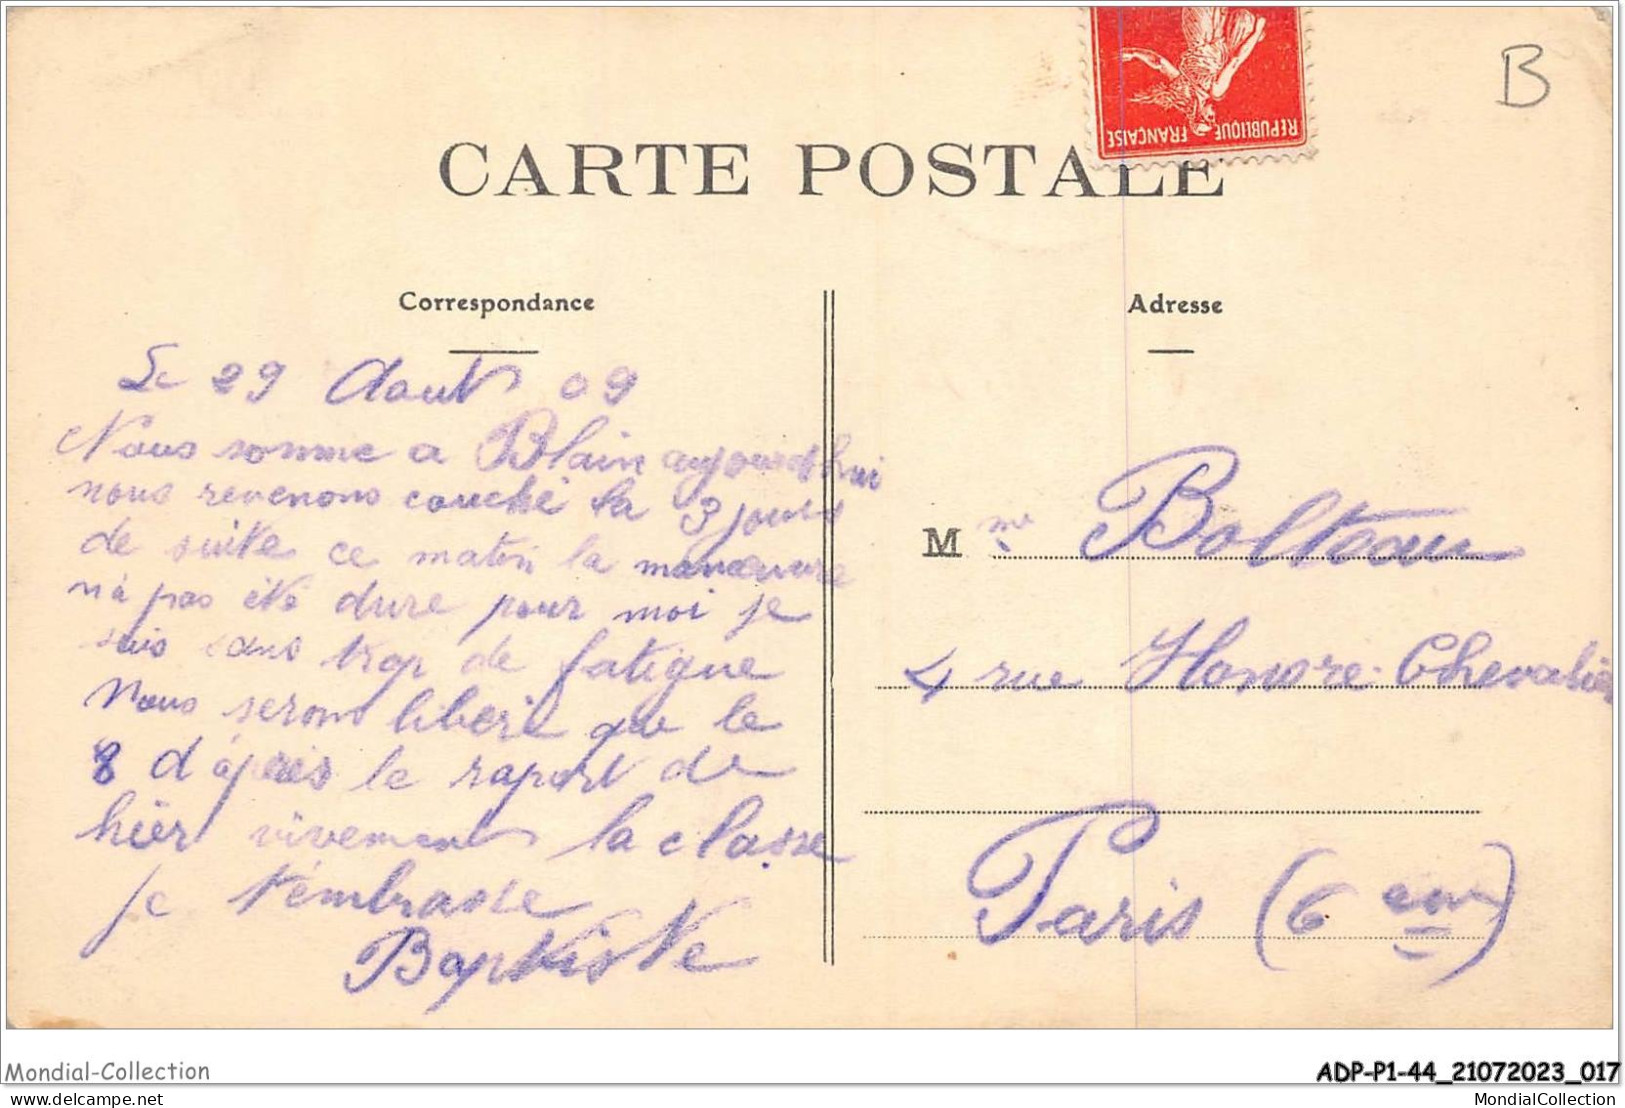 REPUBLIQUE FRANÇAISE
B
CARTE POSTALE
Correspondance
Le 29 Aout 09
Nous somme a Blain aujourd'hui
nous revenons couché la 3 jours
de suite ce matin la manœuvre
n'a pas été dure pour moi je
suis sans trop de fatigue
Nous serons liberé que le
8 d'après le raport de
hier vivement la classe
je t'émbrasse
Baptiste
Adresse
M me Bolteau
4 rue Honoré Chevalier
Paris (6 eme)
Mondial-Collection
ADP-P1-44_21072023_017
delcampe.net
MondialCollection